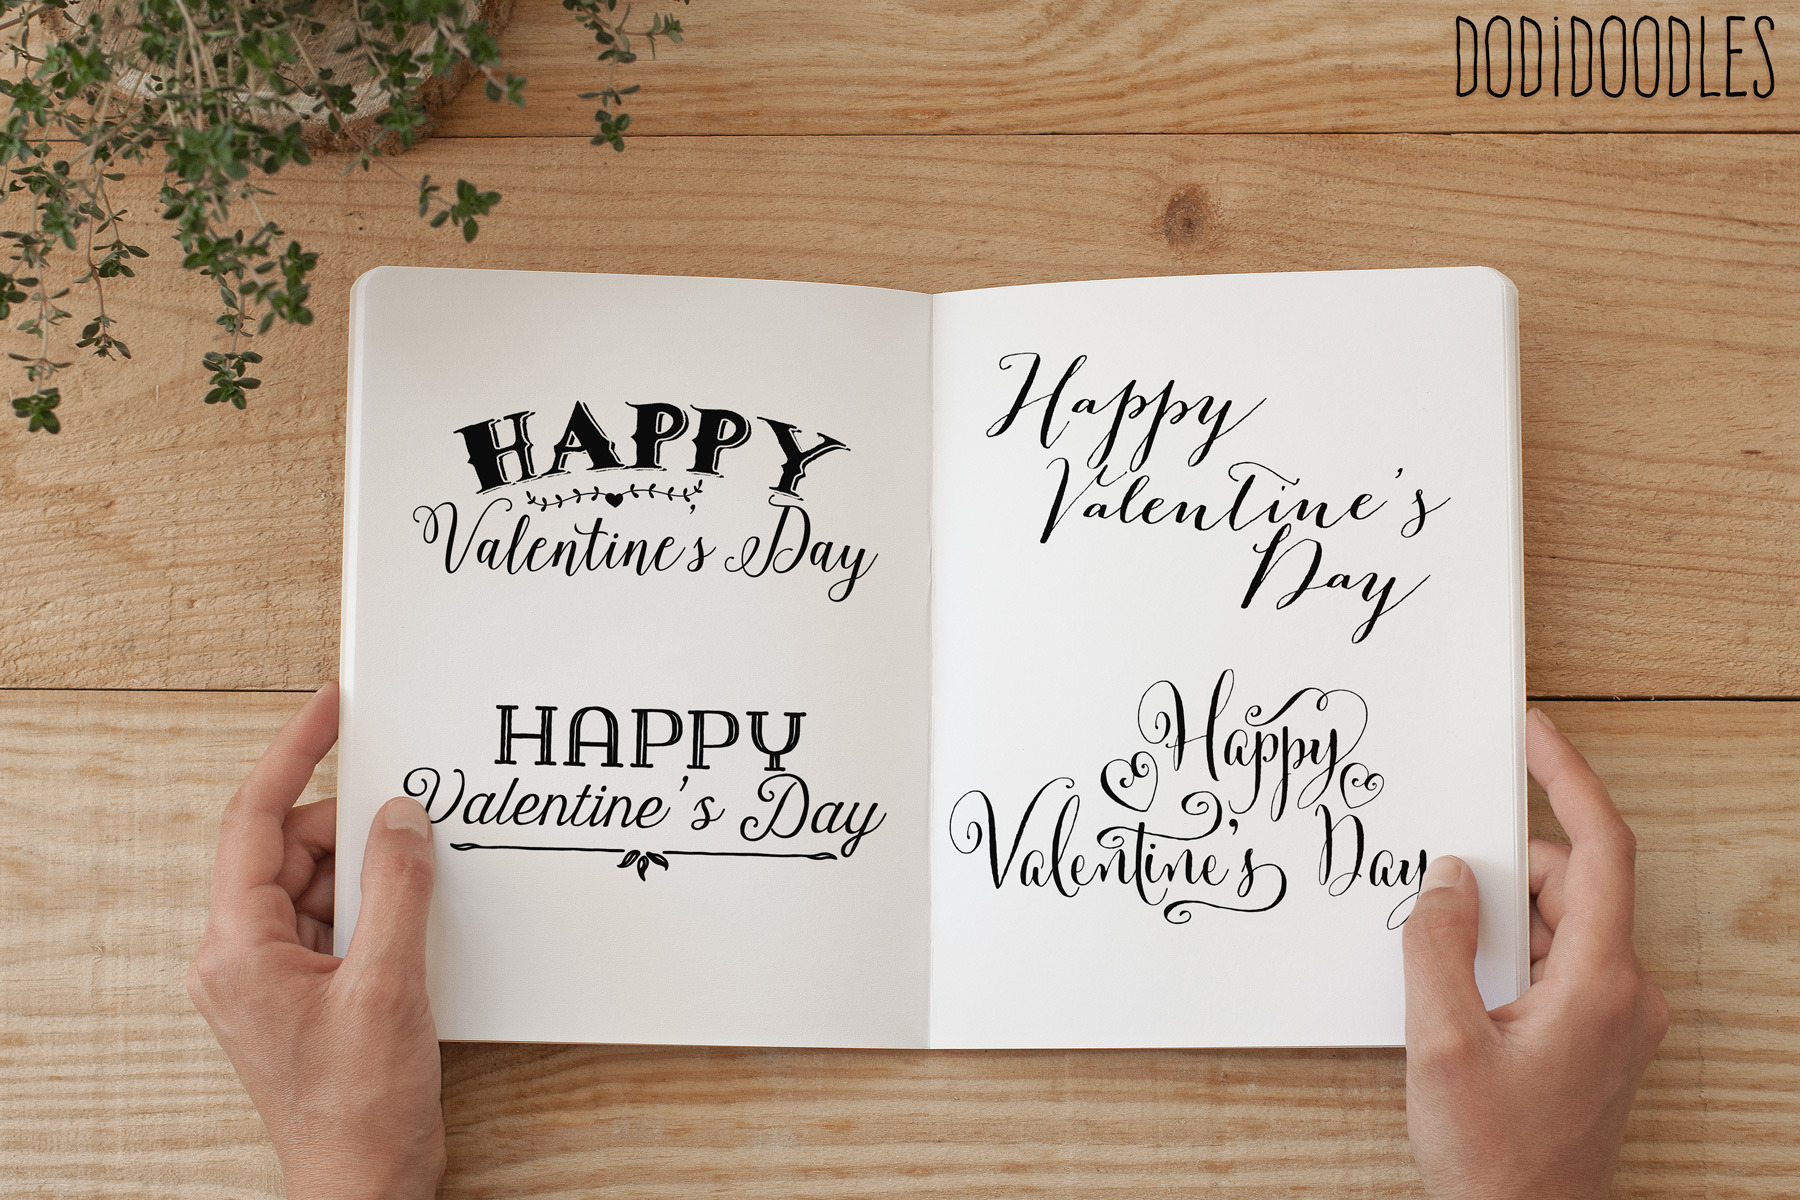 DODiDOODLES
HAPPY
Valentine's Day
HAPPY
Valentine's Day
Happy
Valentine's
Day
Happy
Valentine's Day